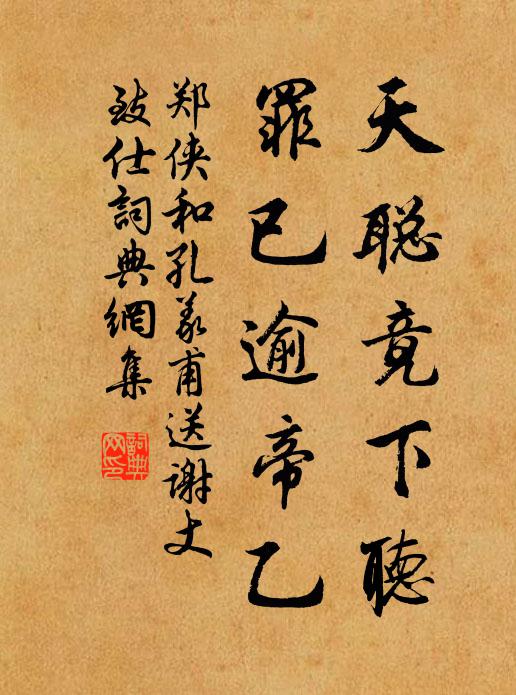 天聪竟下聽
罪已逾帝乙
郑侠和孔羲甫送谢丈
致仕詞典網集
詞典網印